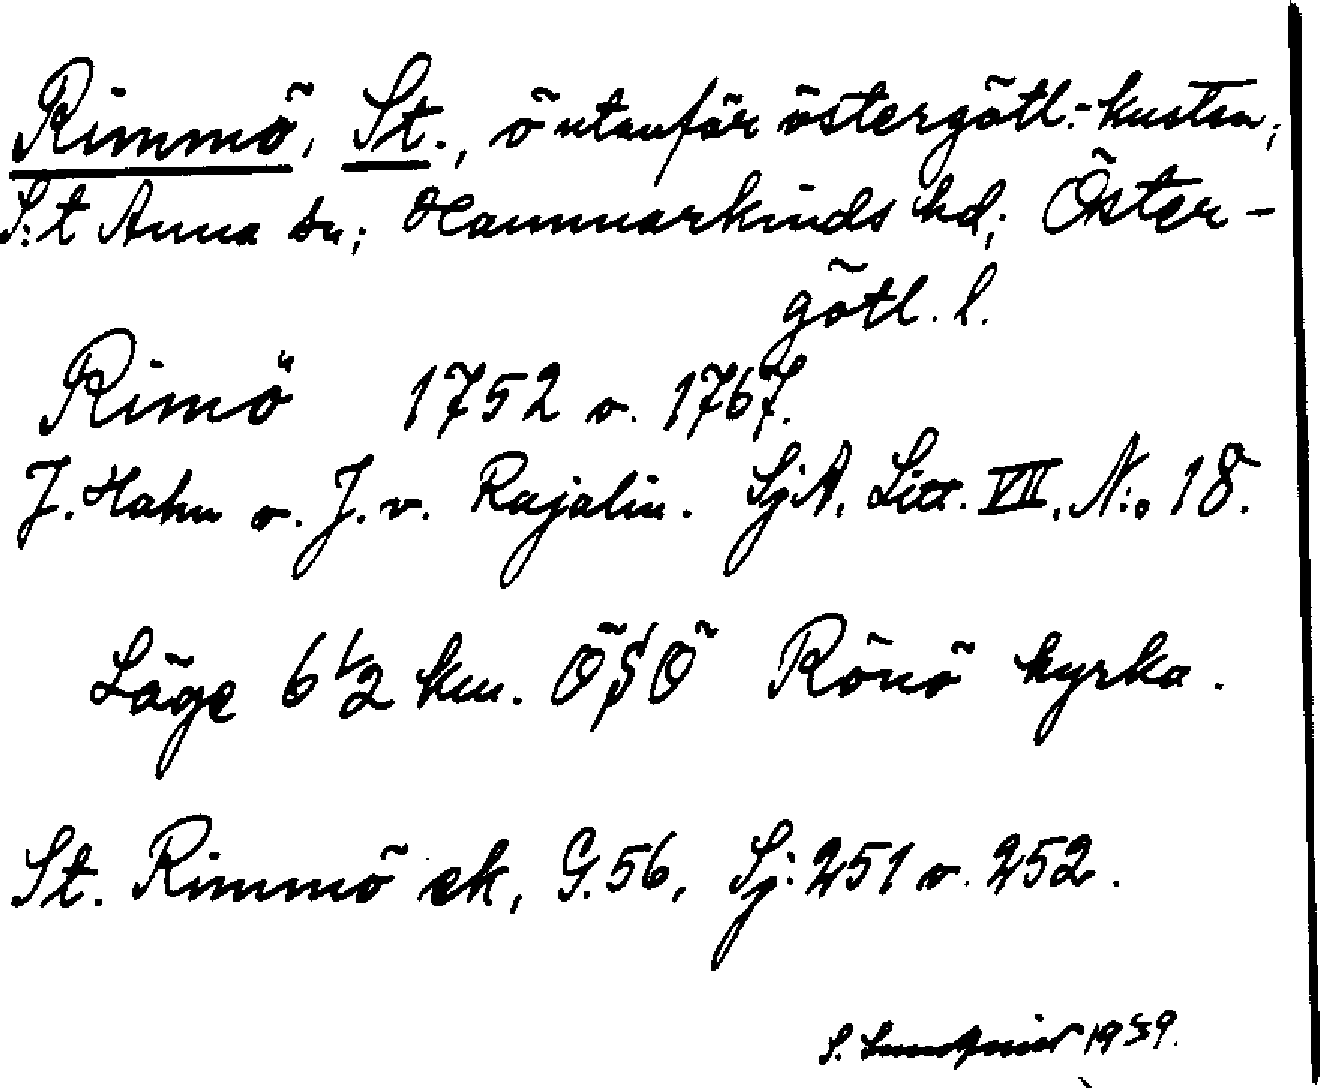 Rimmö, St., ö utanför östergötl.-kusten,
S:t Anna sn; Hammarkinds hd; Öster-
götl. l.
Rimö 1752 o. 1767.
J. Hahn o. J. v. Rajalin. SjA. Litt. VII, N:o 18.
Läge 6 1/2 km. ÖSÖ Rönö kyrka.
St. Rimmö ek, G. 56, Sj: 251 o. 252.
S. 1939.